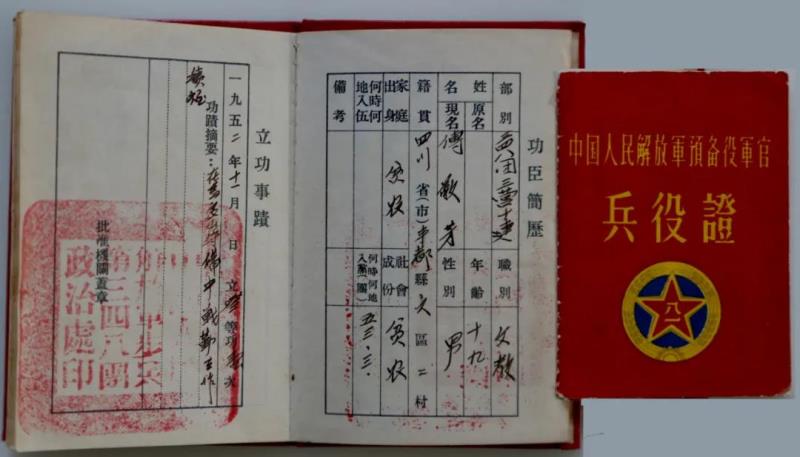 功臣簡歷
部別 職別 文教
姓名 原名 年齡 十九
現名 傅敬芳 性別 男
籍貫 四川省(市)丰都縣 區二村
家庭出身 貧农 社會成份 貧农
何時何地入伍 何時何地入黨(團) 五三.三.
備考
立功事蹟
一九五二年十一月 日 立 等功 次
功蹟摘要：在 中戰勤工作
批准機關蓋章
第三四八團
政治處印
中国人民解放軍預备役軍官
兵役證
八一